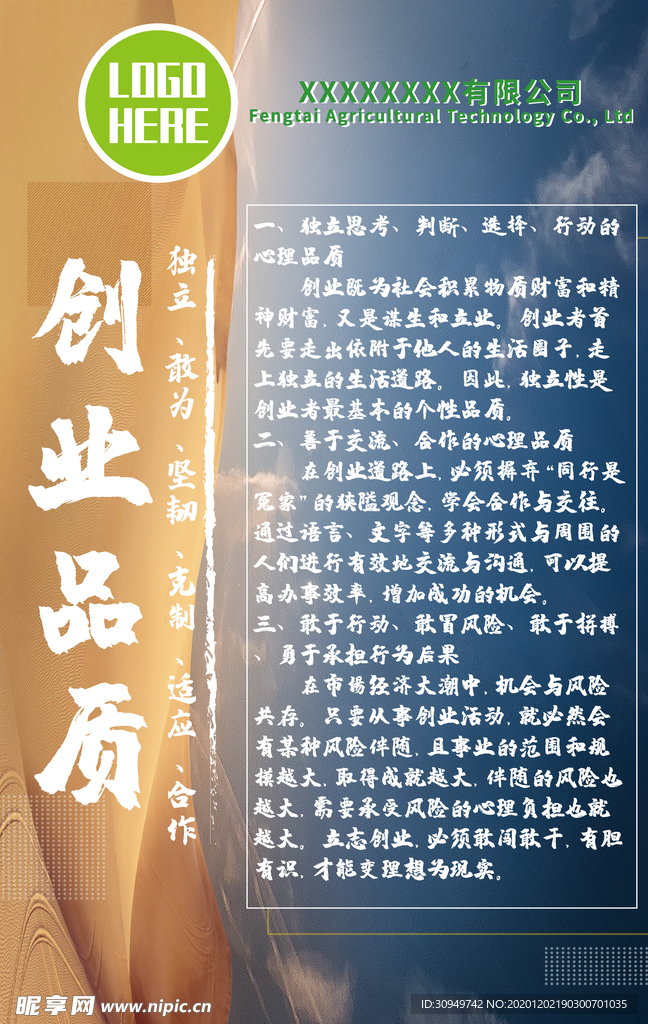 LOGO
HERE
XXXXXXXX有限公司
Fengtai Agricultural Technology Co., Ltd
创业品质
独立、敢为、坚韧、克制、适应、合作
一、独立思考、判断、选择、行动的
心理品质
创业既为社会积累物质财富和精
神财富,又是谋生和立业。创业者首
先要走出依附于他人的生活圈子,走
上独立的生活道路。因此,独立性是
创业者最基本的个性品质。
二、善于交流、合作的心理品质
在创业道路上,必须摒弃“同行是
冤家”的狭隘观念,学会合作与交往。
通过语言、文字等多种形式与周围的
人们进行有效地交流与沟通,可以提
高办事效率,增加成功的机会。
三、敢于行动、敢冒风险、敢于拼搏
、勇于承担行为后果
在市场经济大潮中,机会与风险
共存。只要从事创业活动,就必然会
有某种风险伴随,且事业的范围和规
模越大,取得成就越大,伴随的风险也
越大,需要承受风险的心理负担也就
越大。立志创业,必须敢闯敢干,有胆
有识,才能变理想为现实。
昵享网 www.nipic.cn
ID:30949742 NO:20201202190300701035